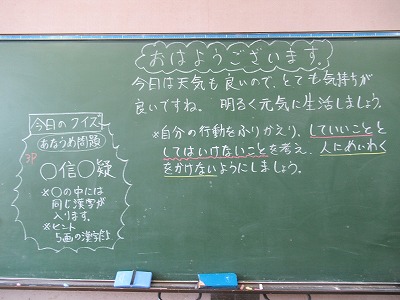 おはようございます。
今日は天気も良いので、とても気持ちが
良いですね。明るく元気に生活しましょう。
※自分の行動をふりかえり、していいことと
してはいけないことを考え、人にめいわく
をかけないようにしましょう。
今日のクイズ
あなうめ問題
〇信〇疑
※〇の中には
同じ漢字が
入ります。
※ヒント
5画の漢字だよ